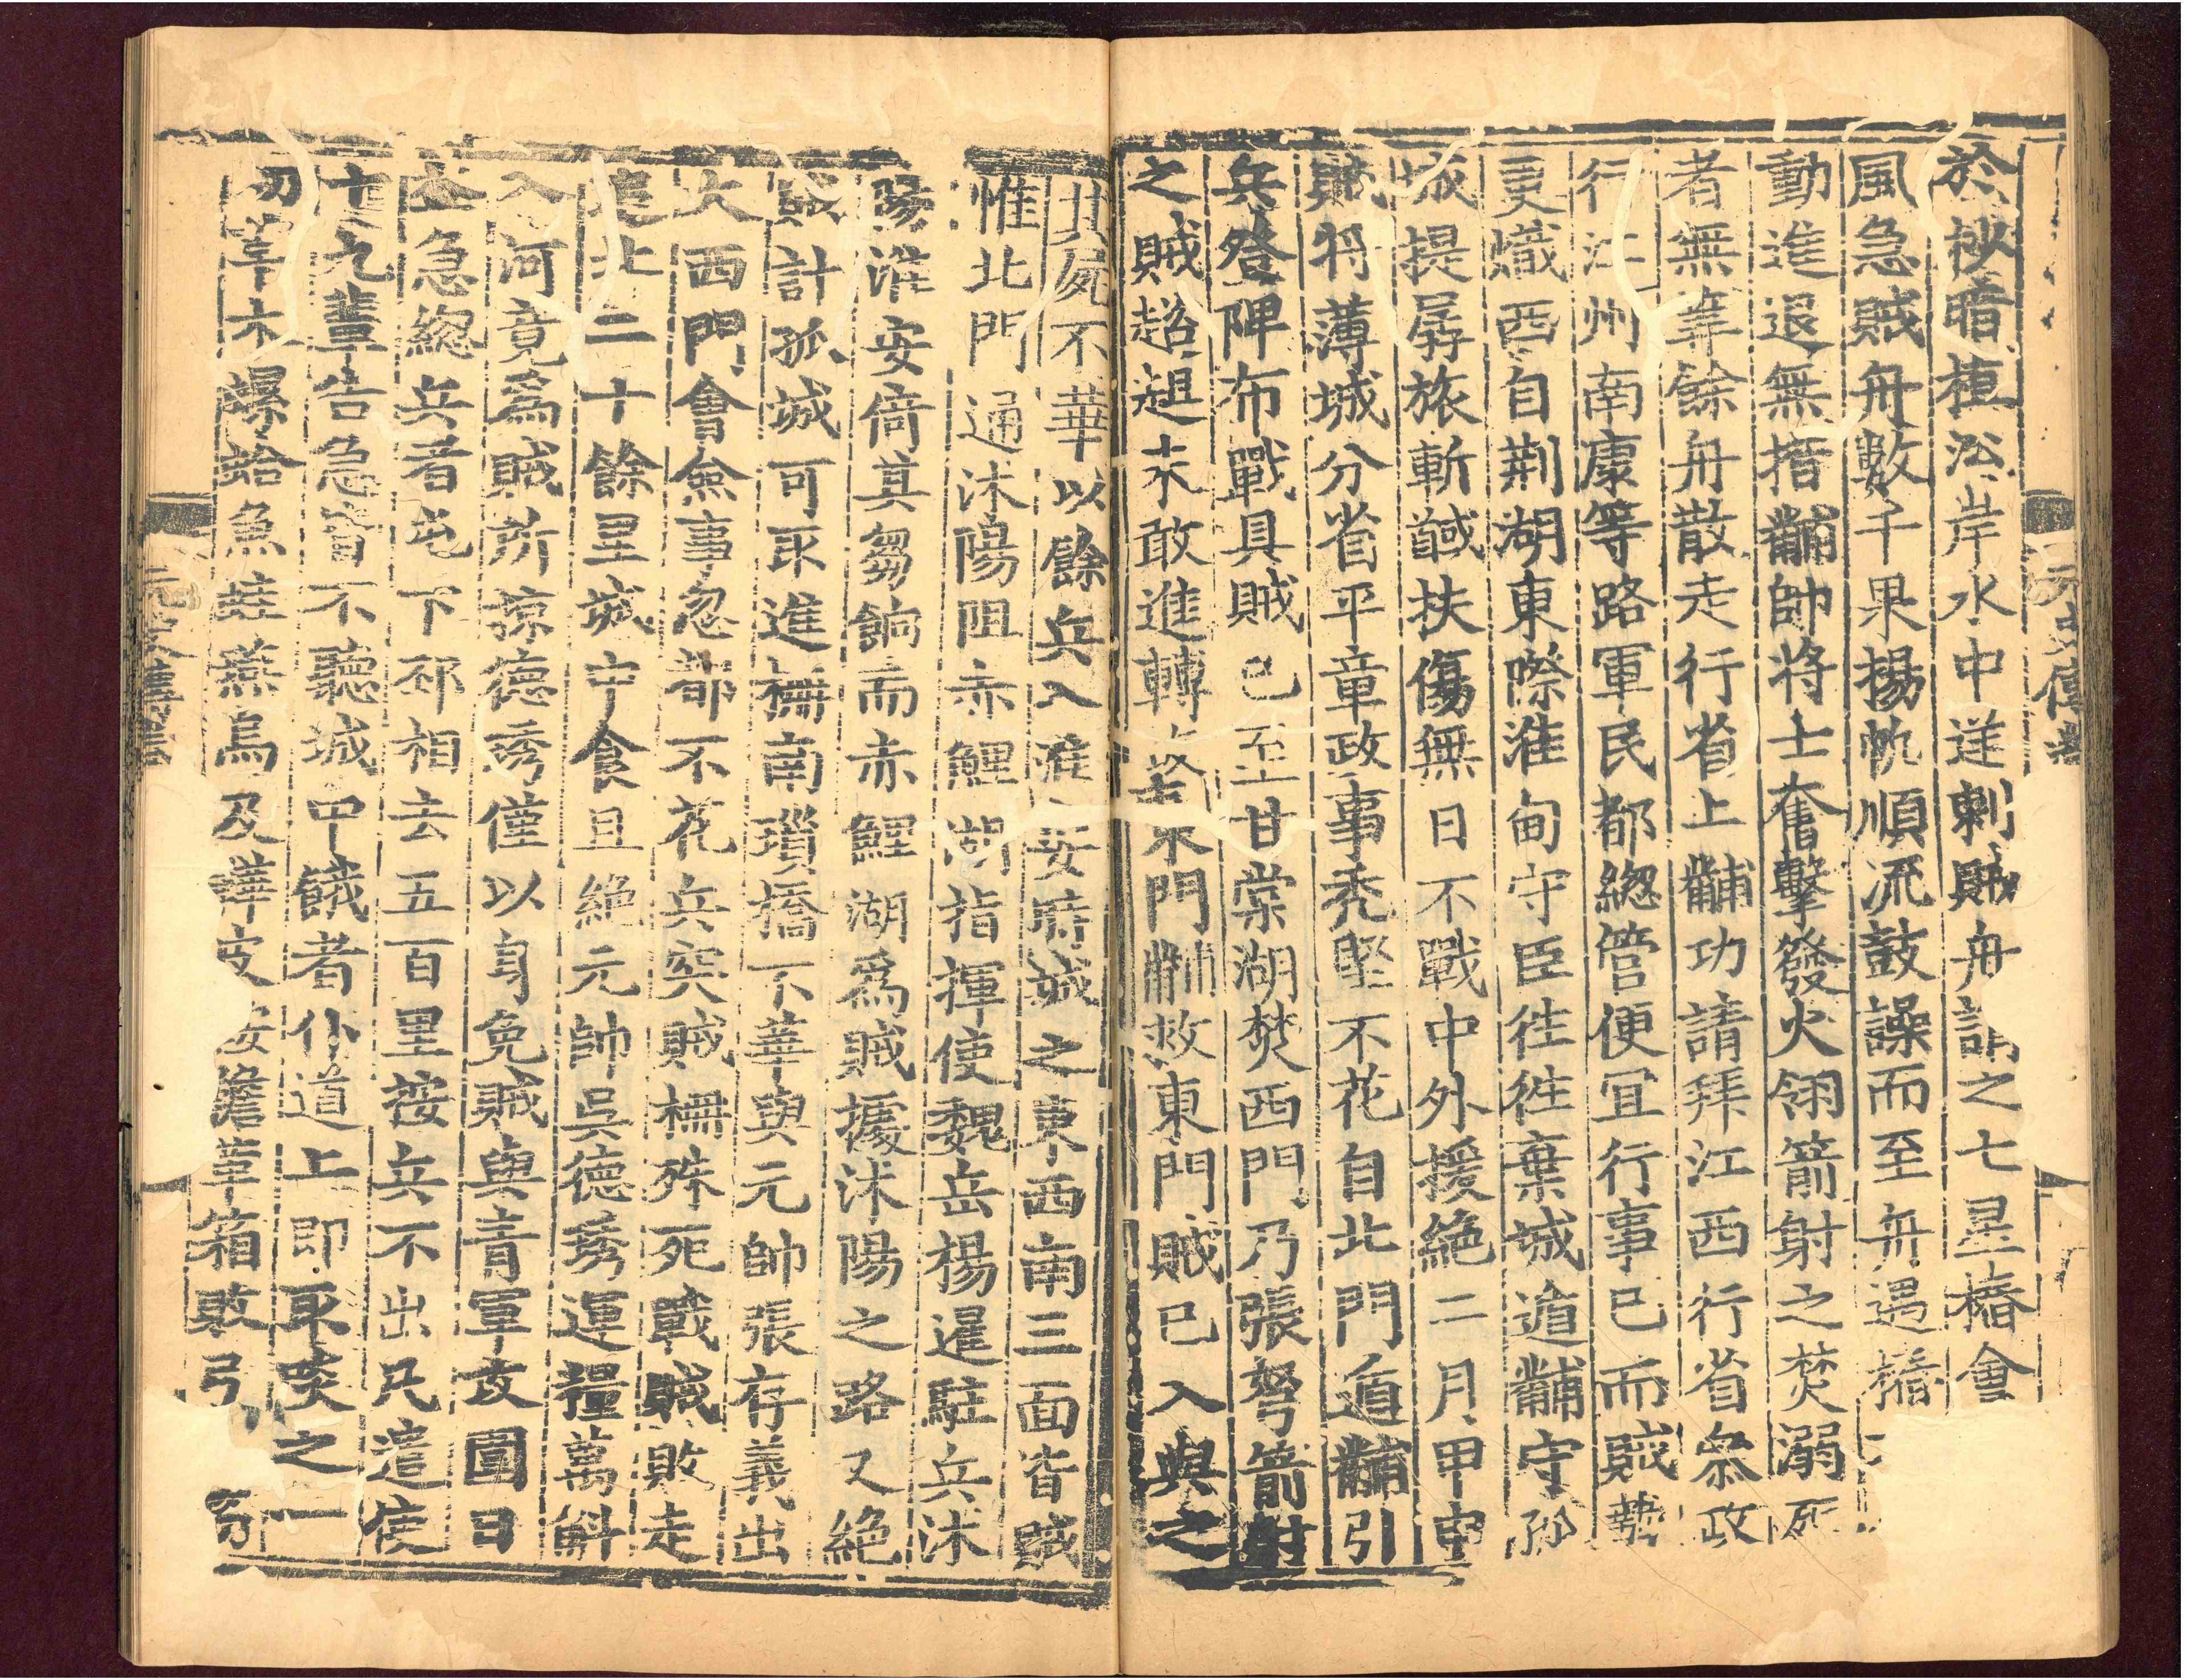 於杪暗植沿岸水中逆刺賊舟謂之七星樁會
風急賊舟數千果揚帆順流鼓譟而至舟遇樁
動進退無措黼帥將士奮擊發火翎箭射之焚溺死
者無筭餘舟散走行省上黼功請拜江西行省叅政
行江州南康等路軍民都總管便冝行事已而賊勢
更熾西自荆湖東際淮甸守臣徃徃棄城遁黼守孤
城提孱旅斬馘扶傷無日不戰中外援絶二月甲申
賊將薄城分省平章政事禿堅不花自北門遁黼引
兵登陴布戰具賊已至甘棠湖焚西門乃張弩箭射
之賊趑趄未敢進轉攻東門黼救東門賊已入與之
其屍不華以餘兵入淮安時城之東西南三面皆賊
惟北門通沭陽阻赤鯉湖指揮使魏岳楊暹駐兵沭
陽淮安倚其芻餉而赤鯉湖爲賊據沭陽之路又絶
賊計孤城可取進栅南瑣橋不華與元帥張存義出
大西門會僉事忽都不花兵突賊栅殊死戰賊敗走
追北二十餘里城中食且絶元帥吳德琇運糧萬斛
入河竟爲賊所掠德琇僅以身免賊與青軍攻圍日
益急總兵者屯下邳相去五百里按兵不出凡遣使
十九輩告急皆不聽城中餓者仆道上即取啖之一
切草木螺蛤魚蛙燕烏及鞾皮鞍韂革箱敗弓